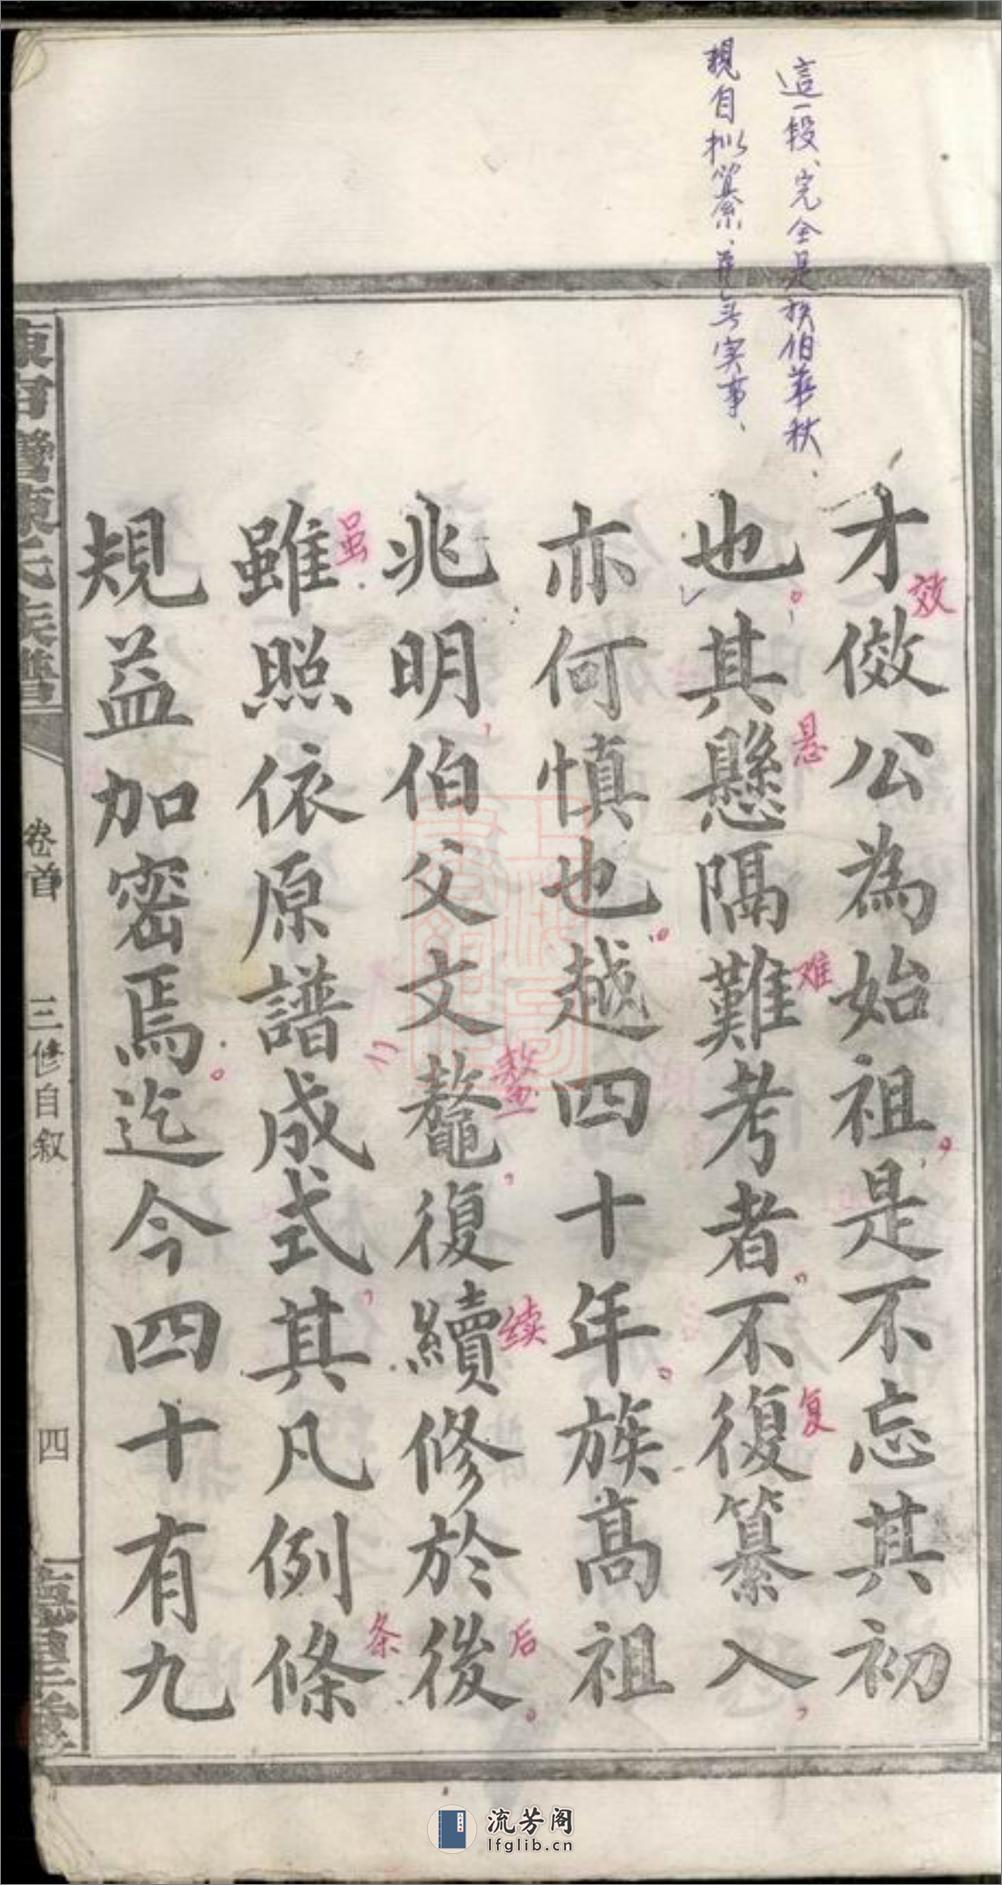 這一段、完全是族伯華秋、
親自拟纂、并无实事、
才傚公為始祖是不忘其初
效
也其懸隔難考者不復纂入
悬
难
复
亦何慎也越四十年族高祖
兆明伯父文鼇復續修於後
鳌
续
后
雖照依原譜成式其凡例條
虽
条
規益加密焉迄今四十有九
陳氏族譜
卷首
三修自叙
四
流芳阁
lfglib.cn